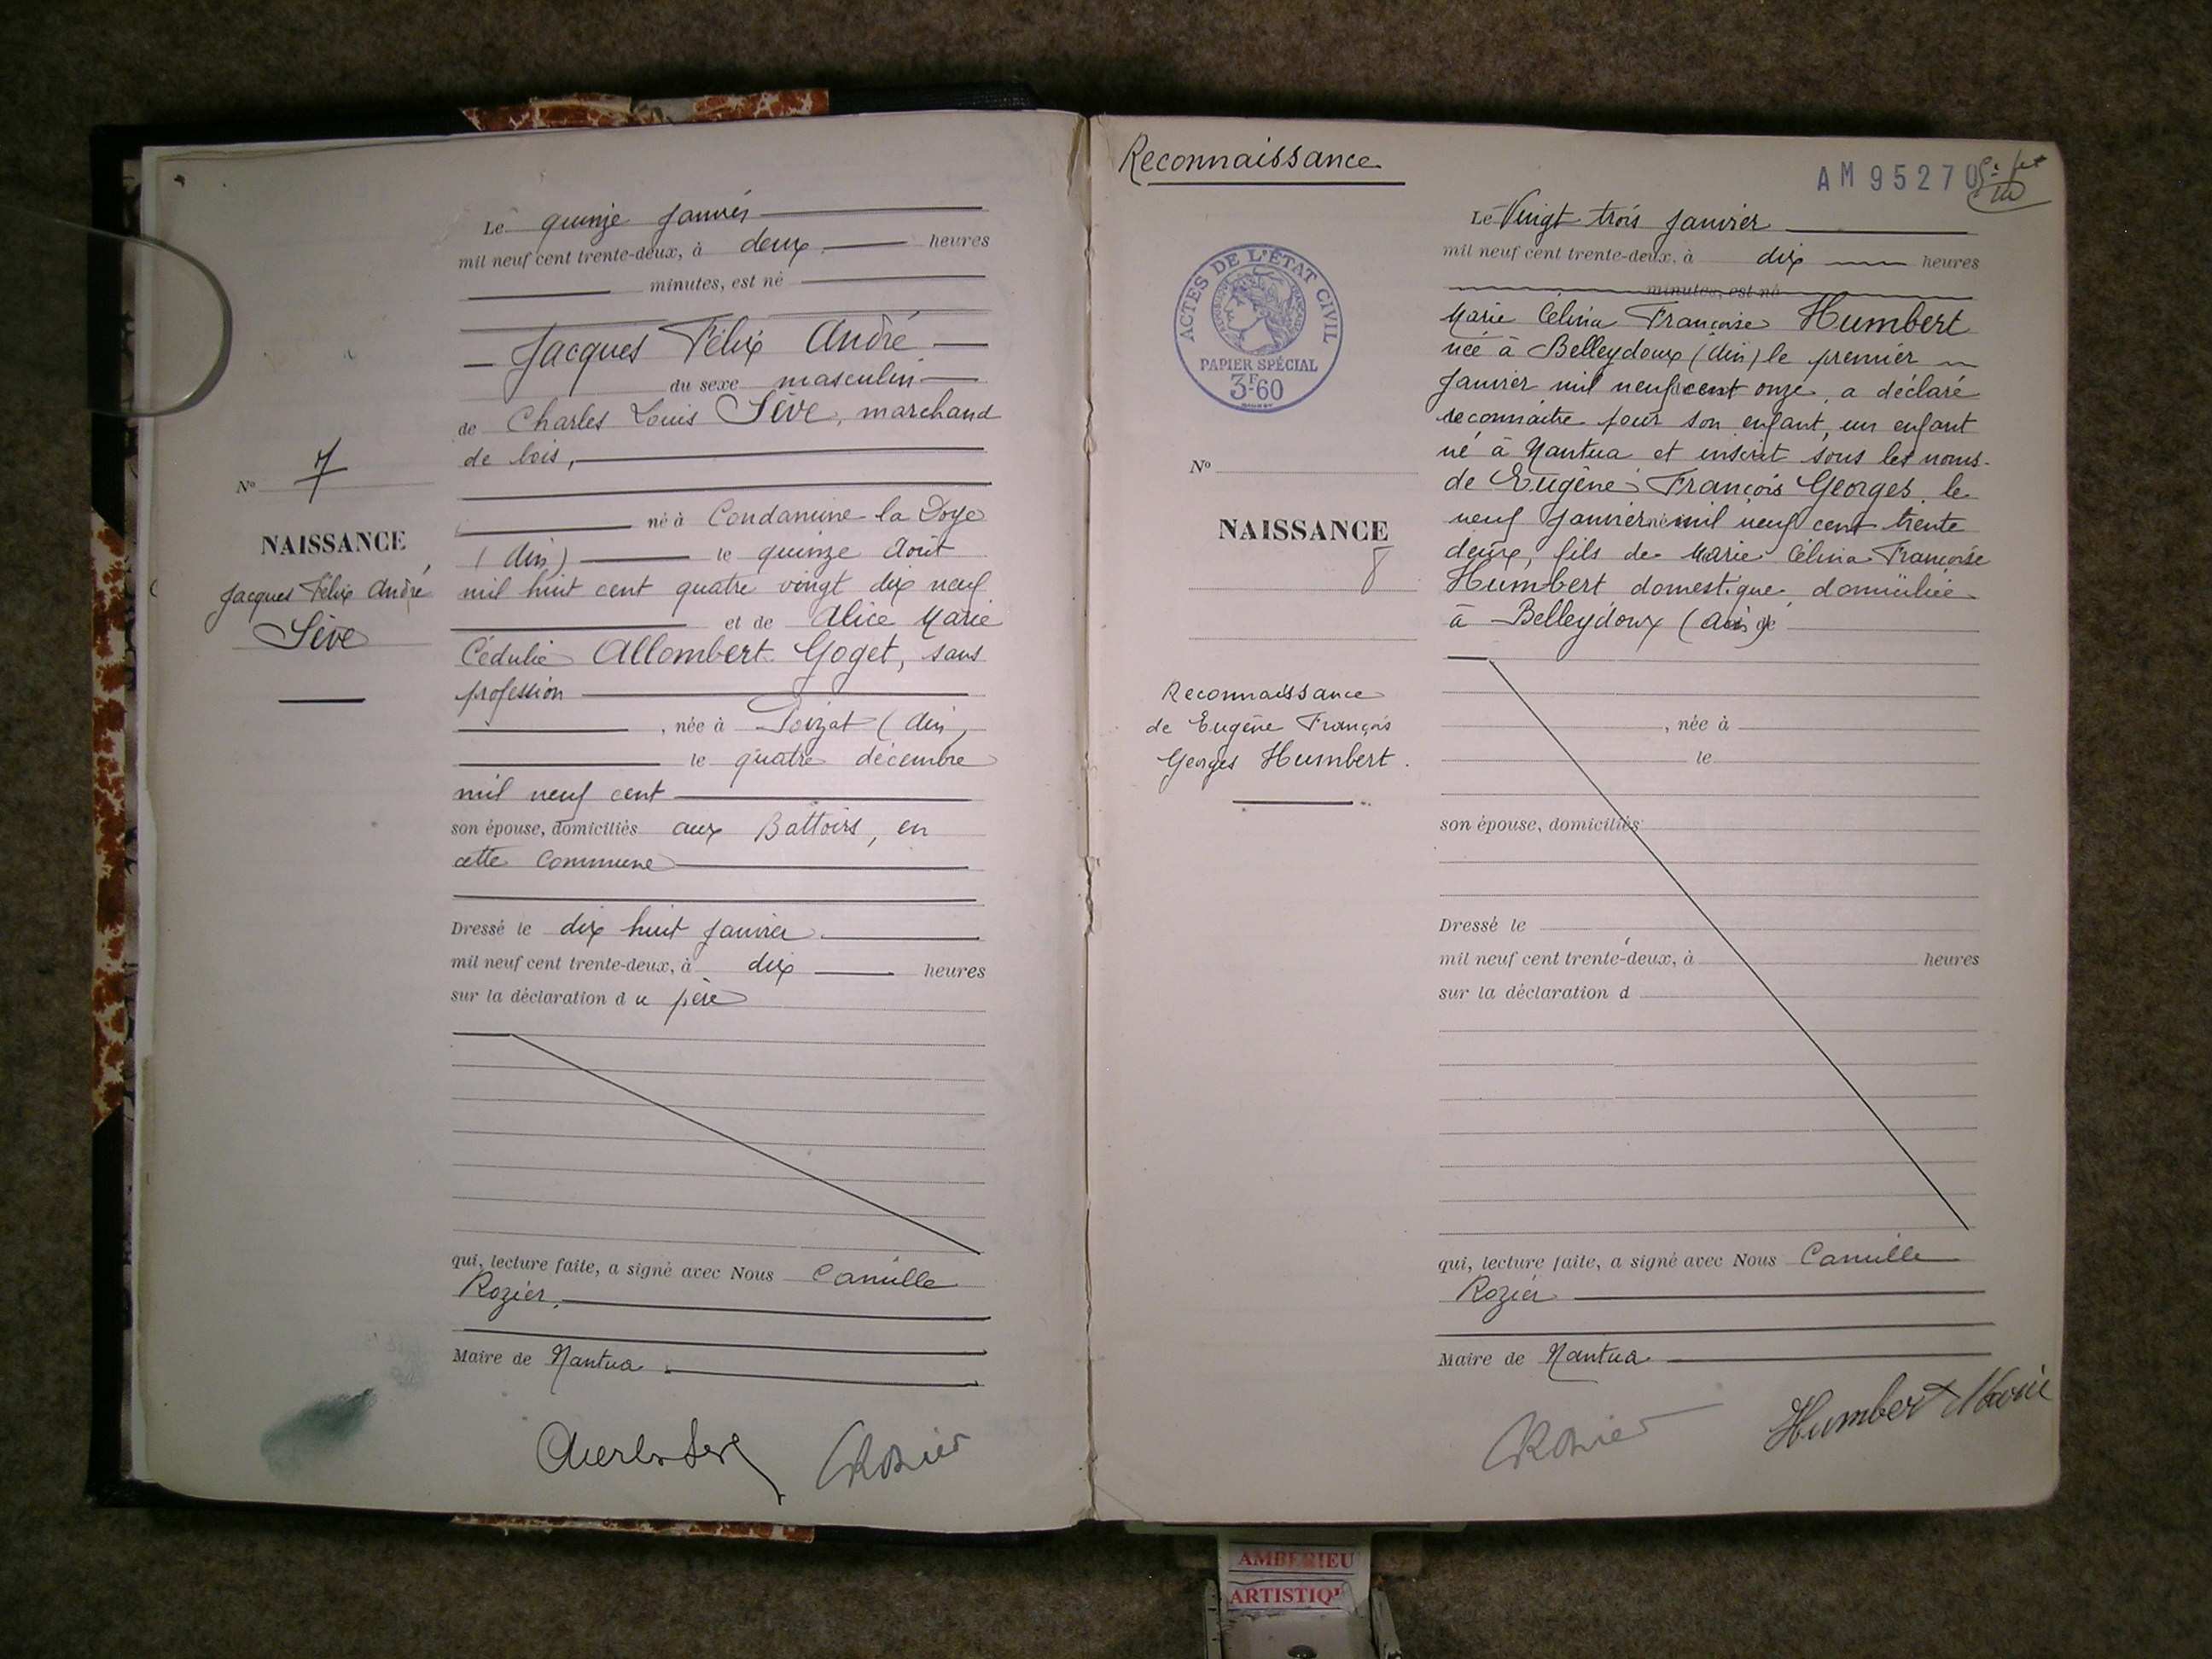 Le quinze Janvier
mil neuf cent trente-deux, à deux heures
minutes, est né
Jacques Félix André
du sexe masculin
de Charles Louis Sève, marchand
de bois,
né à Condamine-la Doye
(Ain) le quinze Août
mil huit cent quatre vingt dix neuf
et de Alice Marie
Cédulie Allombert-Goget, sans
profession
, née à Poizat (Ain,
le quatre décembre
mil neuf cent
son épouse, domiciliés aux Battoirs, en
cette Commune
Dressé le dix huit Janvier
mil neuf cent trente-deux, à dix heures
sur la déclaration du père
qui, lecture faite, a signé avec Nous Camille
Rozier,
Maire de Nantua
CRozier
No 7
NAISSANCE
Jacques Félix André
Sève
Reconnaissance
AM 95270
ACTES DE L'ÉTAT CIVIL
PAPIER SPÉCIAL
3F.60
Le Vingt trois Janvier
mil neuf cent trente-deux, à dix heures
minutes, est né
Marie Célina Françoise Humbert
née à Belleydoux (Ain) le premier
Janvier mil neuf cent onze, a déclaré
reconnaître pour son enfant, un enfant
né à Nantua et inscrit sous les noms
de Eugène François Georges le
neuf Janvier mil neuf cent trente
deux, fils de Marie Célina Françoise
Humbert domestique domiciliée
à Belleydoux (Ain)
, née à
le
son épouse, domiciliés
Dressé le
mil neuf cent trente-deux, à heures
sur la déclaration d
qui, lecture faite, a signé avec Nous Camille
Rozier
Maire de Nantua
CRozier Humbert Marie
No
NAISSANCE
8
Reconnaissance
de Eugène François
Georges Humbert.
AMBERIEU
ARTISTIQ